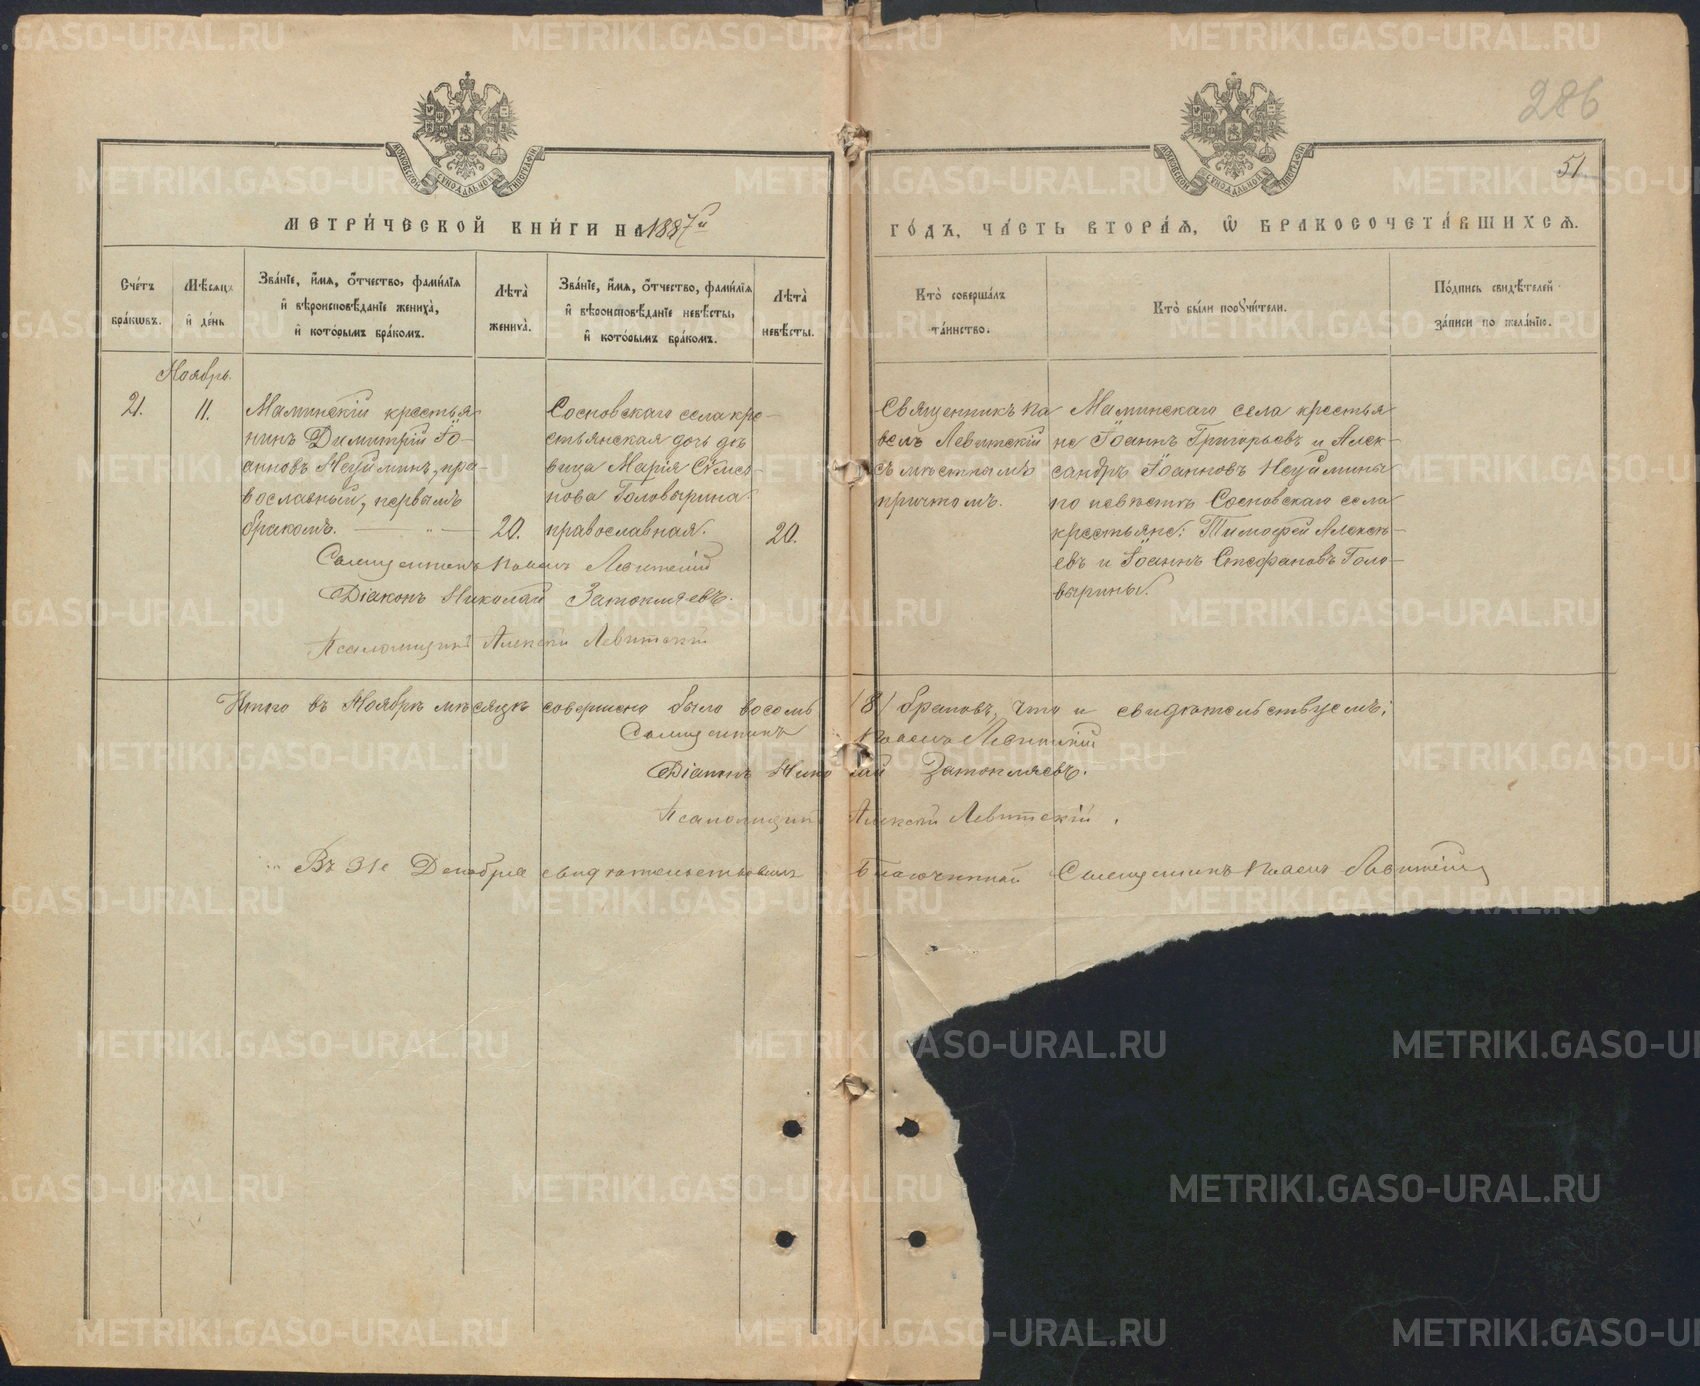 286
51.
МОСКОВСКОЙ СѴНОДАЛЬНОЙ ТИПОГРАФІИ
МОСКОВСКОЙ СѴНОДАЛЬНОЙ ТИПОГРАФІИ
МЕТРИ́ЧЕСКОЙ КНИ́ГИ НА 1887й ГО́ДЪ, ЧА́СТЬ ВТОРА́Я, Ѽ БРАКОСОЧЕТА́ВШИХСѦ.
Сче́тъ
бра́кωвъ.
Мѣ́сяцъ
и҆ де́нь
Зва́нїе, и҆́мя, ѻ҆́тчество, фами́лїя
и҆ вѣроисповѣ́данїе жениха̀,
и҆ кото́рымъ бра́комъ.
Лѣ́та̀
жениха̀.
Зва́нїе, и҆́мя, ѻ҆́тчество, фами́лїя
и҆ вѣроисповѣ́данїе невѣ́сты,
и҆ кото́рымъ бра́комъ.
Лѣ́та̀
невѣ́сты.
Кто̀ соверша́лъ
та́инство.
Кто̀ бы́ли порꙋчи́тели.
По́дпись свидѣ́телей
за́писи по жела́нїю.
Ноябрь.
21.
11.
Маминскій крестья
нинъ Димитрій Іо-
анновъ Неуйминъ, пра-
вославный, первымъ
бракомъ. — " —
20.
Сосновскаго села кре-
стьянская дочь дѣ
вица Марія Сѷмео-
нова Головырина
православная.
20.
Священникъ Па
велъ Левитскій
съ мѣстнымъ
причтомъ.
Маминскаго села крестья
не Іоаннъ Григорьевъ и Алек-
сандръ Іоанновъ Неуймины
по невѣстѣ Сосновскаго села
крестьяне: Тимофей Алексѣ-
евъ и Іоаннъ Стефановъ Голо-
вырины.
Священникъ Павелъ Левитскій
Діаконъ Николай Затопляевъ.
Псаломщикъ Алексій Левитскій
Итого въ Ноябрѣ мѣсяцѣ совершено было восемь (8) браковъ, что и свидѣтельствуемъ:
Священникъ Павелъ Левитскій
Діаконъ Николай Затопляевъ.
Псаломщикъ Алексій Левитскій.
Въ 31е Декабря свидѣтельствовалъ Благочинный Священникъ Павелъ Левитскій
METRIKI.GASO-URAL.RU